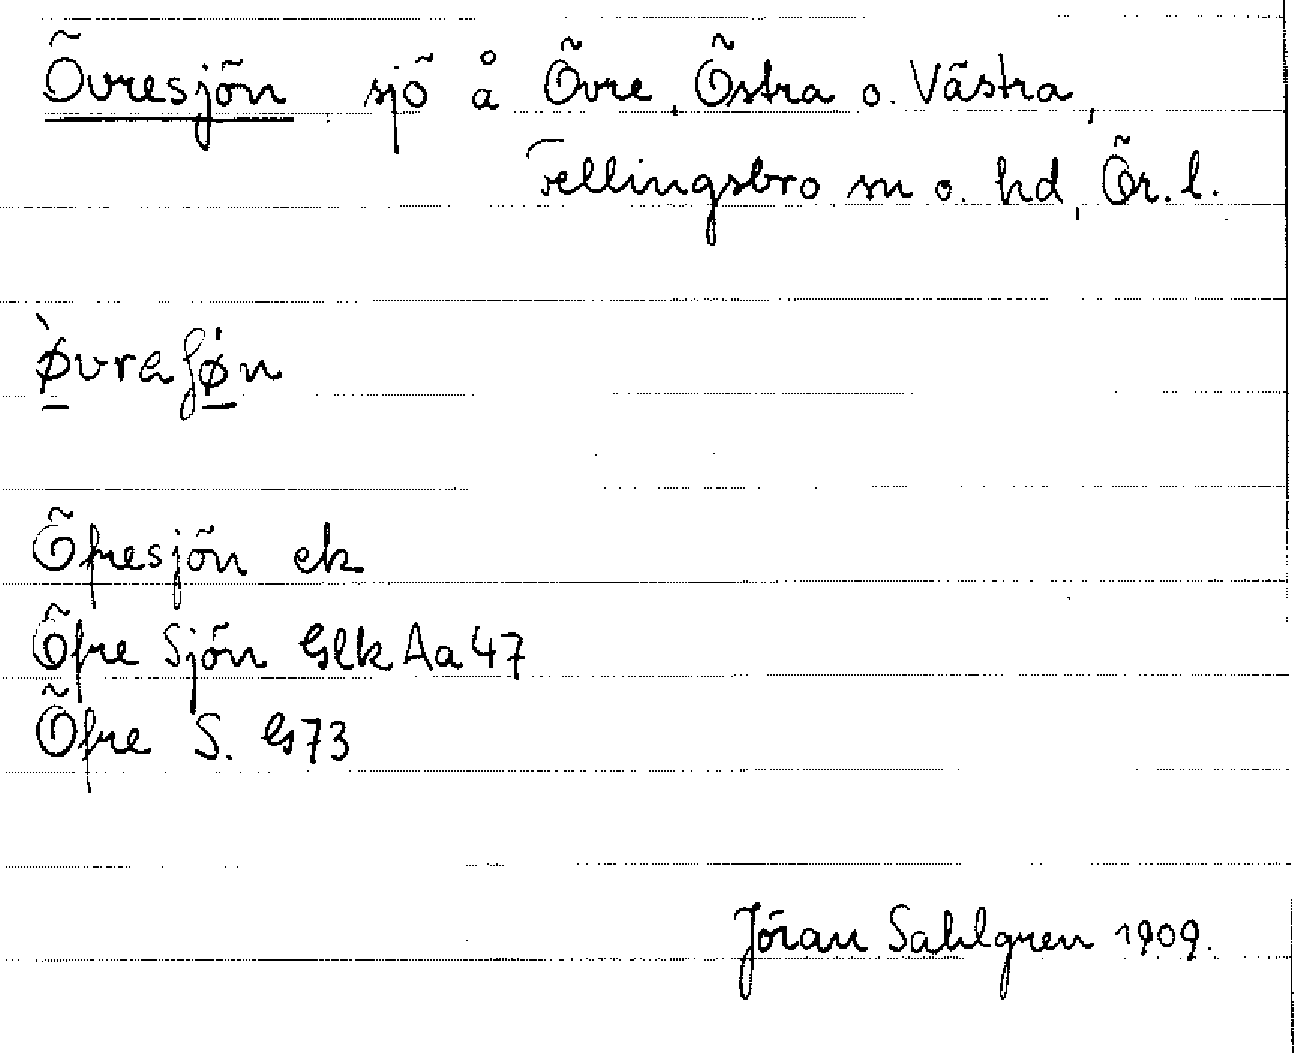 Övresjön sjö å Övre, Östra o. Västra,
Fellingsbro sn o. hd, Ör. l.
ø̱̀vraʃǿ̱n
Öfresjön ek
Öfre Sjön GlkAa47
Öfre S. G73
Jöran Sahlgren 1909.